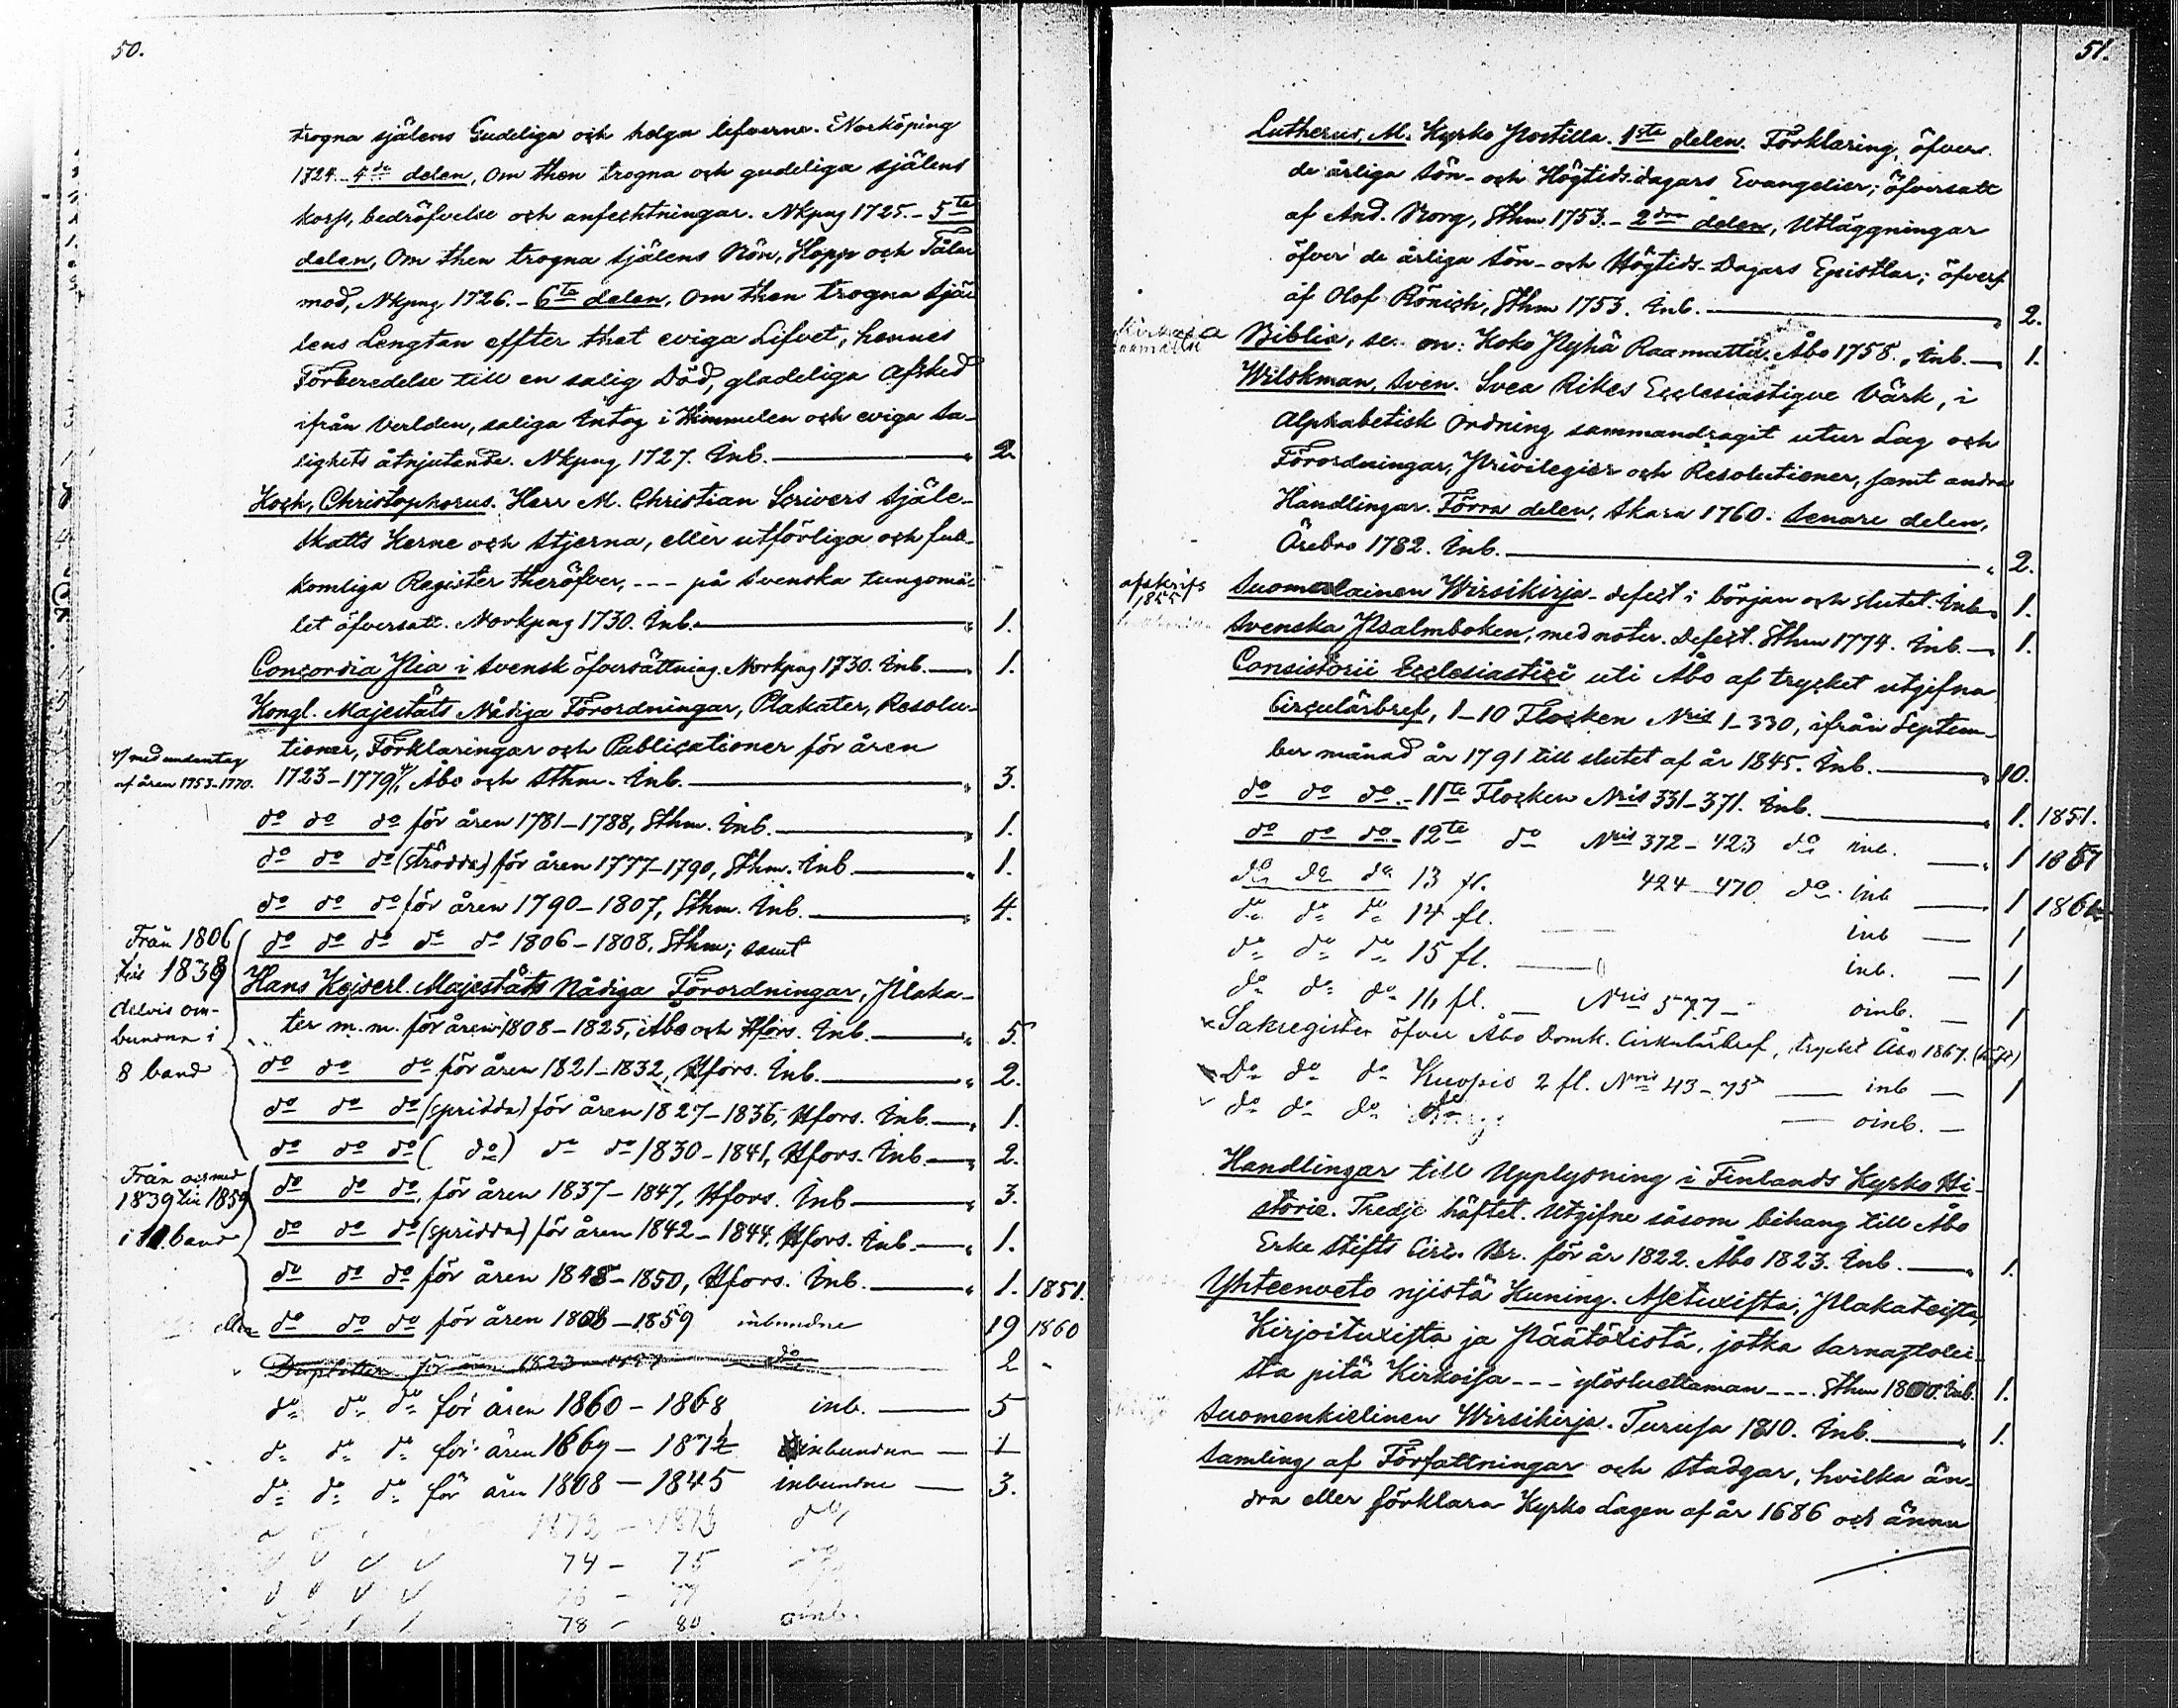 50.
trogna själens Gudeliga och helga lefverne. Norköping
1724. 4de delen, Om then trogna och gudeliga själens
korss, bedröfvelse och anfechtningar. Nkpng 1725. - 5te
delen, Om then trogna själens Bön, Hopp och Tåla-
mod, Nkpng 1726. - 6te delen, Om then trogna Sjä-
lens Lengtan effter thet eviga Lifvet, hennes
Förberedelse till en salig Död, gladeliga Afsked
ifrån Verlden, saliga Intog i Himmelen och eviga Sa-
lighets åtnjutande. Nkpng 1727. Inb. — " 2.
Koch, Christophorus. Herr M. Christian Scrivers Själe-
Skatts Kerne och Stjerna, eller utförliga och full-
komliga Register theröfver, - - - på Svenska tungomå-
let öfversatt. Norkpng 1730. Inb. — " 1.
Concordia Pia i Svensk öfversättning. Norkpng 1730. Inb. — 1.
Kongl. Majestäts Nådiga Förordningar, Plakater, Resolu-
tioner, Förklaringar och Publicationer för åren
*/ med undantag
af åren 1753-1770.
1723-1779*/, Åbo och Sthm. Inb. — " 3.
do do do för åren 1781-1788, Sthm. Inb. — " 1.
do do do (strödda) för åren 1777-1790, Sthm. Inb — " 1.
do do do för åren 1790-1807, Sthm. Inb. — " 4.
Från 1806
till 1838
delvis om-
bundna i
8 band
do do do do do 1806-1808, Sthm; samt
Hans Kejserl. Majestäts Nådiga Förordningar, Plaka-
ter m. m. för åren 1808-1825, Åbo och Hfors. Inb. — " 5.
do do do för åren 1821-1832, Hfors. Inb. — " 2.
do do do (spridda) för åren 1827-1836, Hfors. Inb. — " 1.
do do do ( do ) do do 1830-1841, Hfors. Inb. — " 2.
Från och med
1839 till 1859
i 11 band
do do do för åren 1837-1847, Hfors. Inb — " 3.
do do do (spridda) för åren 1842-1844, Hfors. Inb. — " 1.
do do do för åren 1848-1850, Hfors. Inb. — " 1. 1851.
eller do do do för åren 1808-1859 inbundne 19 1860
Dupletter för åren do 2 -
do do do för åren 1860-1868 inb. — 5
do do do för åren 1869-1872 inbundna — 1
do do do för åren 1808-1845 inbundne — 3.
1873
74 - 75
78 - 80. oinb.
51.
Lutherus, M. Kyrko Postilla. 1sta delen. Förklaring öfver
de årliga Sön- och Högtids-dagars Evangelier; öfversatt
af And. Norg, Sthm 1753. - 2dra delen, Utläggningar
öfver de årliga Sön- och Högtids-Dagars Epistlar; öfvers.
af Olof Rönigk, Sthm 1753. Inb. — " 2.
Biblia, se on: Koko Pyhä Raamattu. Åbo 1758. Inb. — 1.
Wilskman, Sven. Svea Rikes Ecclesiastique Värk, i
Alphabetisk Ordning sammandragit utur Lag och
Förordningar, Privilegier och Resolutioner, samt andra
Handlingar. Förra delen, Skara 1760. Senare delen,
Örebro 1782. Inb. — " 2.
afskrifs
1855
Suomalainen Wirsikirja - defect i början och slutet. Inb — 1.
Svenska Psalmboken, med noter. Defect. Sthm 1774. Inb. — " 1.
Consistorii Ecclesiastici uti Åbo af trycket utgifna
Circulärbref, 1-10 Flocken Nris 1-330, ifrån Septem-
ber månad år 1791 till slutet af år 1845. Inb. — " 10.
do do do - 11te Flocken Nris 331-371. Inb. — " 1. 1851.
do do do - 12te do Nris 372-423 do inb. — " 1 1857
do do do 13 fl. 424-470 do inb — 1
do do do 14 fl. — inb — 1
do do do 15 fl. — inb. — 1
do do do 16 fl. — Nris 577 - oinb. — 1
Sakregister öfver Åbo Domk. Cirkulärbref, tryckt Åbo 1867. (häft)
Do do do Kuopio 2 fl. Nris 43-75 — inb — 1
do do do — oinb. —
Handlingar till Upplysning i Finlands Kyrko Hi-
storie. Tredje häftet. Utgifne såsom bihang till Åbo
Erke Stifts Circ. Br. för år 1822. Åbo 1823. Inb. — " 1.
Yhteenveto njistä Kuning. Asetuxista, Plakateista,
Kirjoituxista ja Päätöxistä, jotka Sarnastolei-
sta pitä Kirkoisa - - - ylösluettaman - - - Sthm 1800. Inb. 1.
Suomenkielinen Wirsikirja. Turusa 1810. Inb. — " 1.
Samling af Författningar och Stadgar, hvilka än-
dra eller förklara Kyrko Lagen af år 1686 och ännu